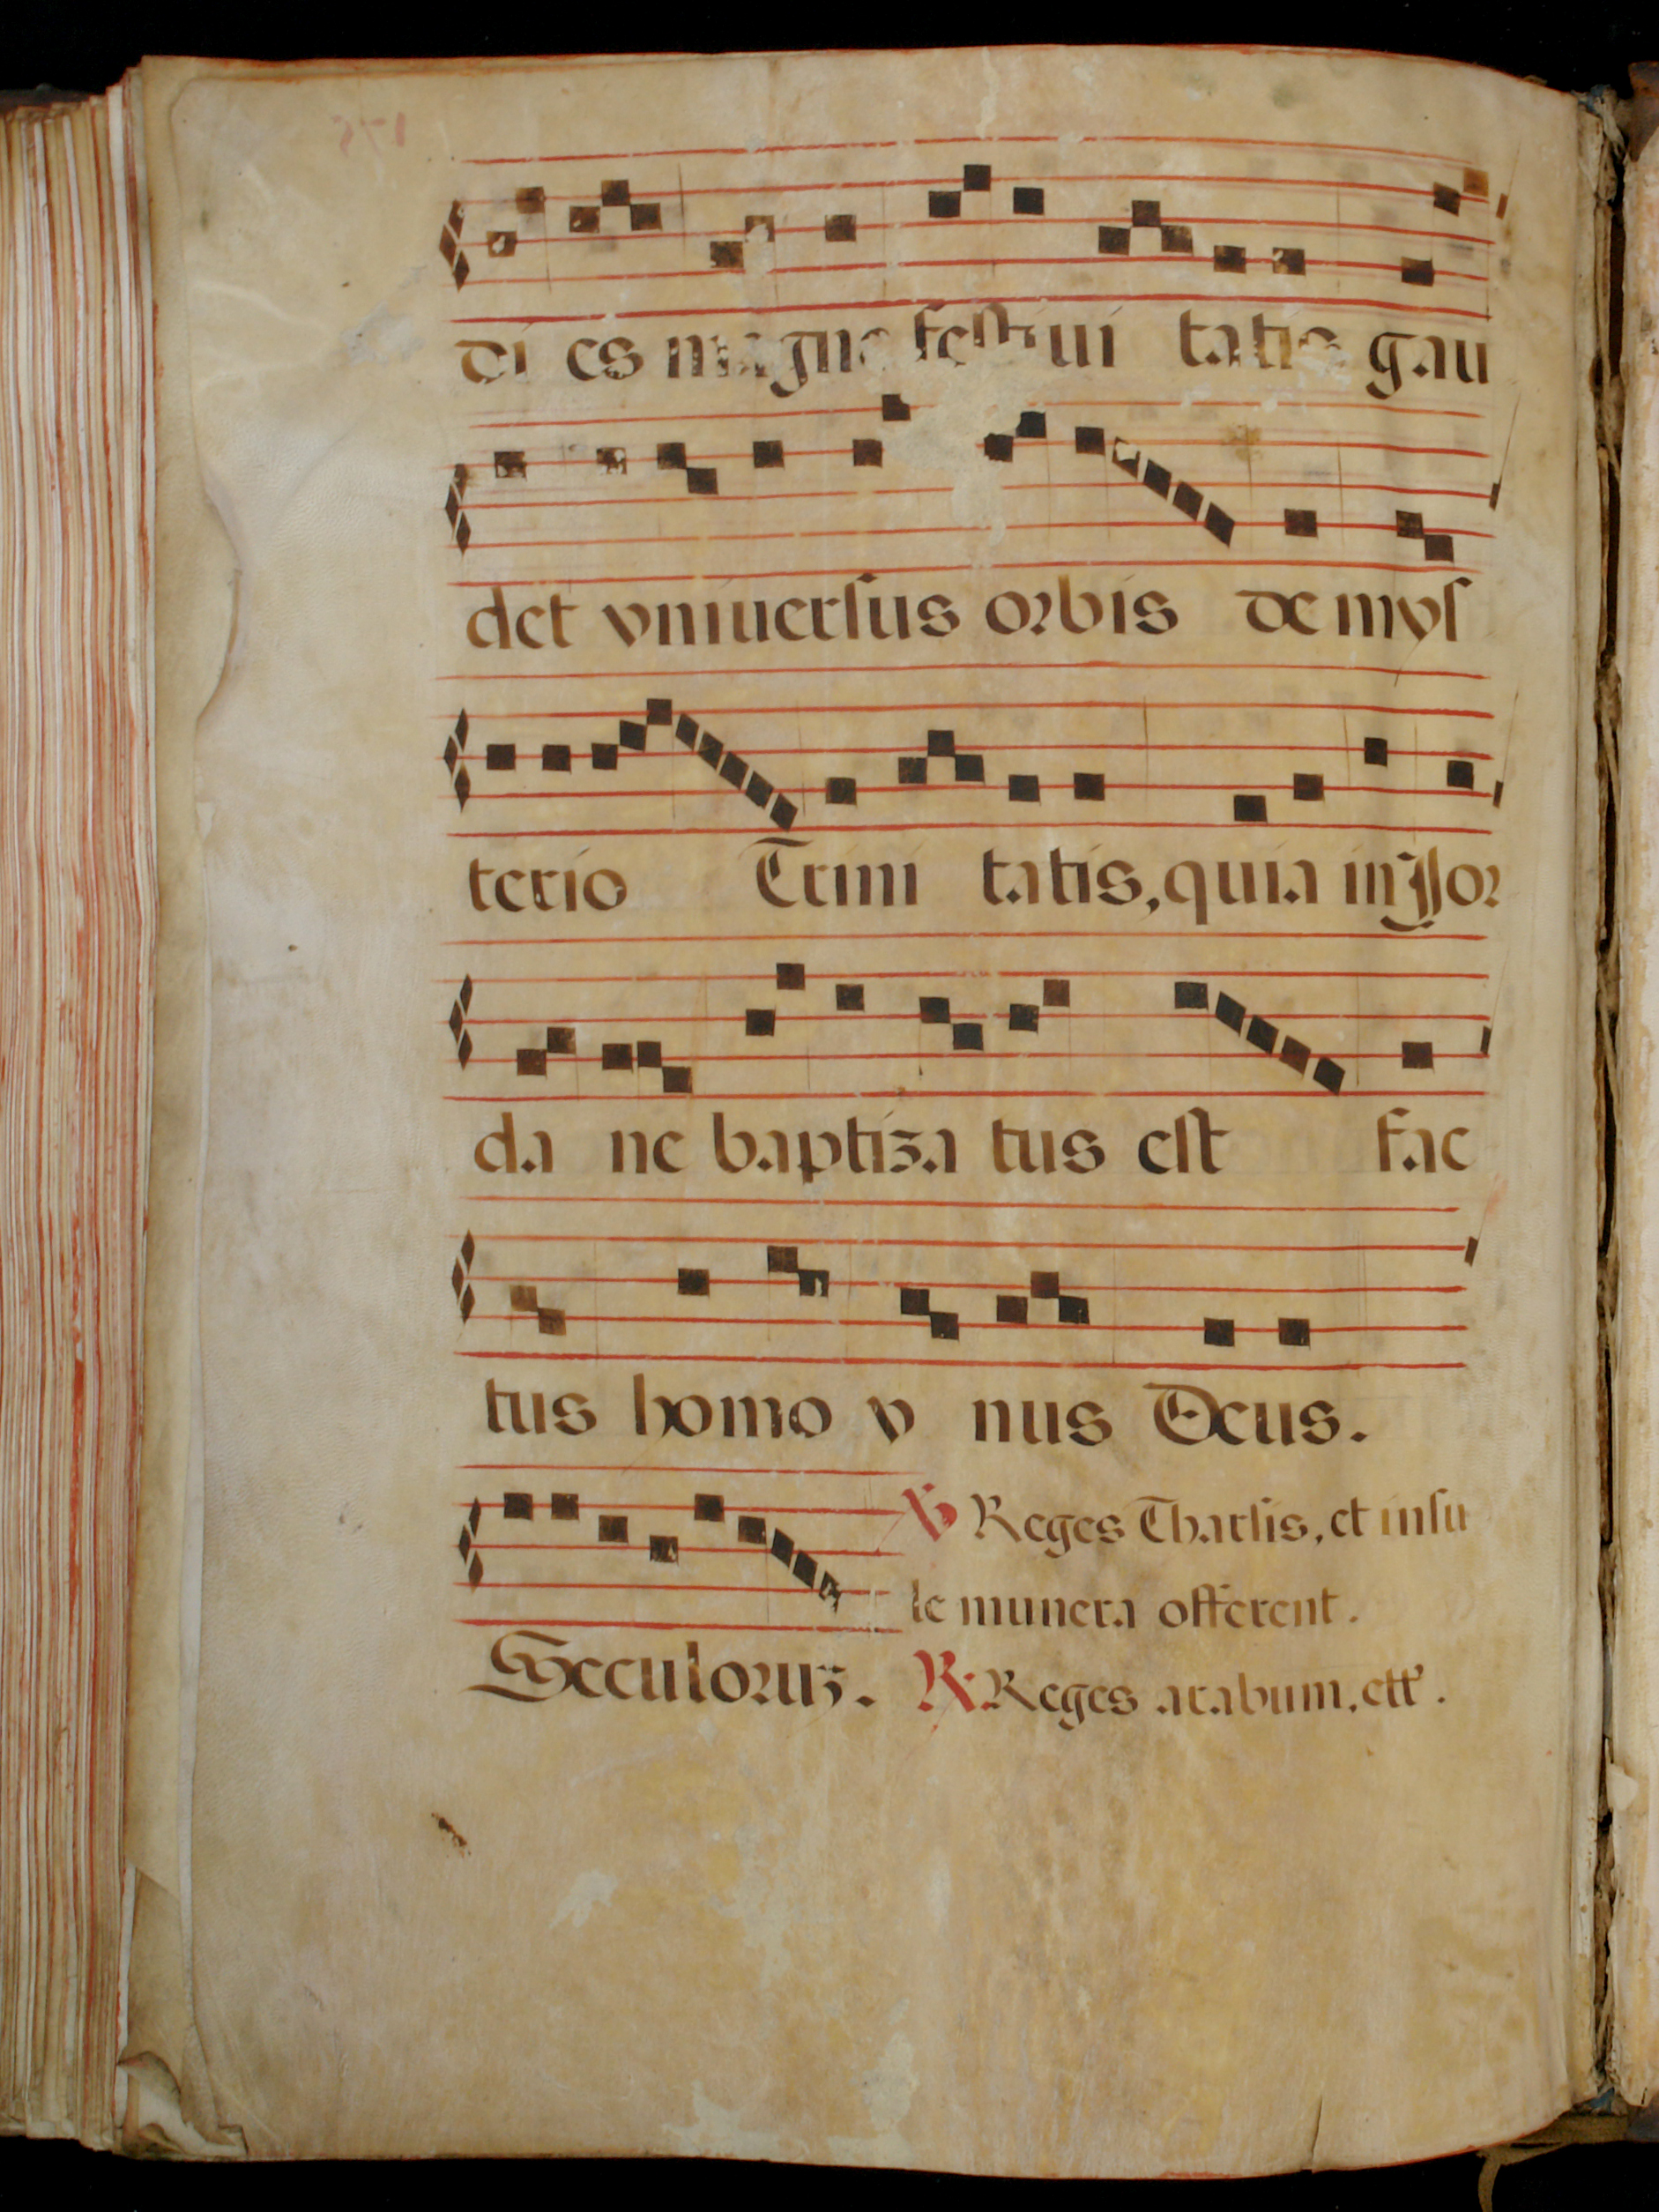 di es magne festiui tatis gau
det vniuersus orbis de mys
terio Trini tatis, quia in Jor
da ne baptiza tus est fac
tus homo v nus Deus.
℣ Reges Tharsis, et insu
le munera offerent.
Seculoruz. ℟. Reges arabum, ett.